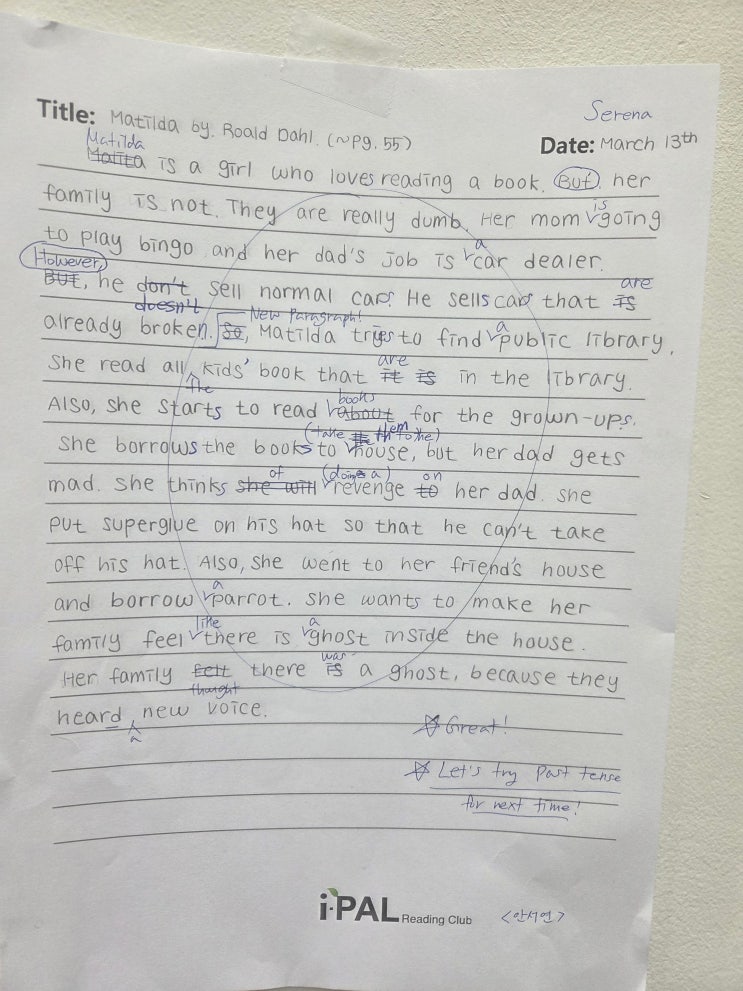 Serena
Title: Matilda by. Roald Dahl. (~pg. 55)
Date: March 13th
Matilda
Matita is a girl who loves reading a book. But, her
family is not. They are really dumb. Her mom is going
to play bingo and her dad's job is a car dealer.
However,
But, he don't sell normal cars. He sells cars that is are
doesn't
New Paragraph!
already broken. So, Matilda tries to find a public library.
She read all The kids' book that it is are in the library.
Also, she starts to read books about for the grown-ups.
(take them to the)
She borrows the books to house, but her dad gets
mad. She thinks she will of (doing a) revenge to on her dad. She
put superglue on his hat so that he can't take
off his hat. Also, she went to her friend's house
and borrow a parrot. She wants to make her
family feel like there is a ghost inside the house.
Her family felt there is was a ghost, because they
thought
heard a new voice.
☆ Great!
☆ Let's try past tense
for next time!
i-PAL Reading Club
<안서연>